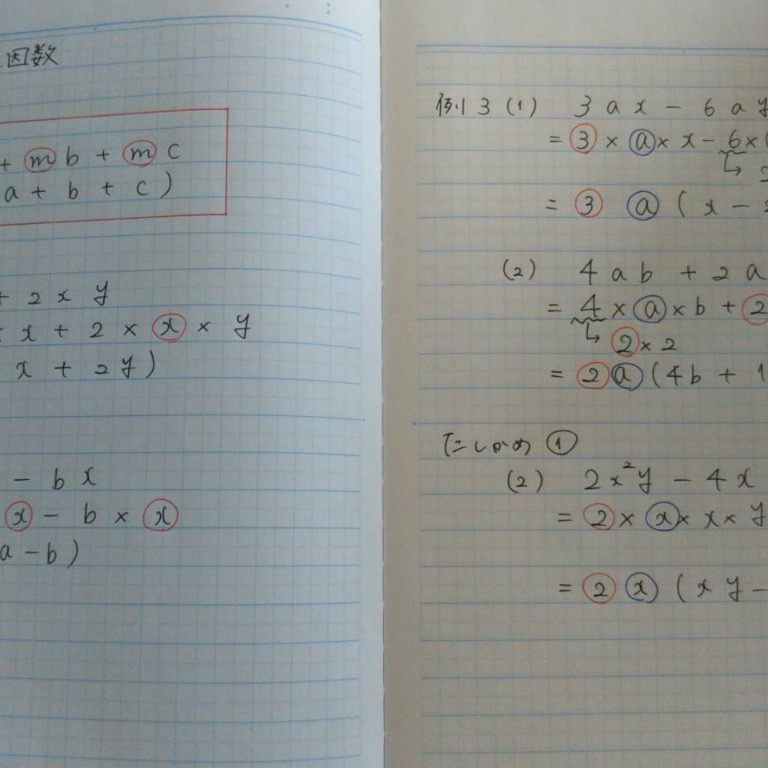 因数
+ mb + mc
a + b + c)
+ 2xy
x + 2 × x × y
x + 2y)
- bx
x - b × x
a - b)
例3 (1) 3ax - 6ay
= 3 × a × x - 6 ×
= 3 a (x -
(2) 4ab + 2a
= 4 × a × b + 2
2 × 2
= 2a (4b + 1
たしかめ ①
(2) 2x²y - 4x
= 2 × x × x × y
= 2 x (xy -